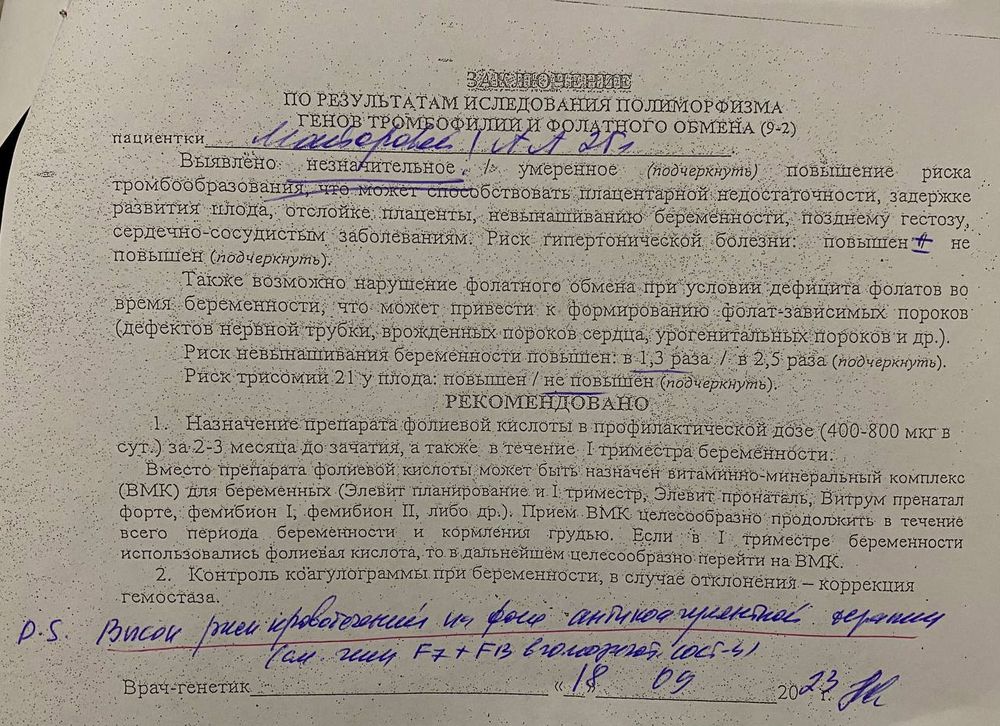 ЗАКЛЮЧЕНИЕ
ПО РЕЗУЛЬТАТАМ ИСЛЕДОВАНИЯ ПОЛИМОРФИЗМА
ГЕНОВ ТРОМБОФИЛИИ И ФОЛАТНОГО ОБМЕНА (9-2)
пациентки
Выявлено незначительное / умеренное (подчеркнуть) повышение риска
тромбообразования, что может способствовать плацентарной недостаточности, задержке
развития плода, отслойке плаценты, невынашиванию беременности, позднему гестозу,
сердечно-сосудистым заболеваниям. Риск гипертонической болезни: повышен # не
повышен (подчеркнуть).
Также возможно нарушение фолатного обмена при условии дефицита фолатов во
время беременности, что может привести к формированию фолат-зависимых пороков
(дефектов нервной трубки, врожденных пороков сердца, урогенитальных пороков и др.).
Риск невынашивания беременности повышен: в 1,3 раза / в 2,5 раза (подчеркнуть).
Риск трисомий 21 у плода: повышен / не повышен (подчеркнуть).
РЕКОМЕНДОВАНО
1. Назначение препарата фолиевой кислоты в профилактической дозе (400-800 мкг в
сут.) за 2-3 месяца до зачатия, а также в течение I триместра беременности.
Вместо препарата фолиевой кислоты может быть назначен витаминно-минеральный комплекс
(ВМК) для беременных (Элевит планирование и I триместр, Элевит пронаталь, Витрум пренатал
форте, фемибион I, фемибион II, либо др.). Прием ВМК целесообразно продолжить в течение
всего периода беременности и кормления грудью. Если в I триместре беременности
использовались фолиевая кислота, то в дальнейшем целесообразно перейти на ВМК.
2. Контроль коагулограммы при беременности, в случае отклонения – коррекция
гемостаза.
P.S. Высок риск кровотечений на фоне антикоагулянтной терапии
(см. гены F7 + F13 в гомозигот. сост-и)
Врач-генетик «18» 09 2023 г.